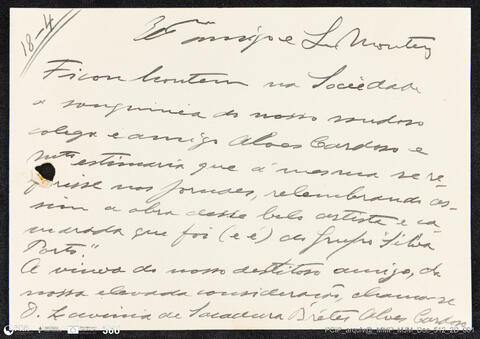 18-4
Exmo amigo e Sr. Montez
Ficou hontem na Sociedade
a do nosso saudoso
colega e amigo Alves Cardoso e
muito estimaria que á mesma se re-
ferisse nos jornaes, relembrando as-
sim a obra desse belo artista e ca-
marada que foi (e é) do grupo "Silva
Porto."
A viuva do nosso ditoso amigo, da
nossa elevada consideração, chama-se
D. de Sacadura Bretes Alves Cardoso